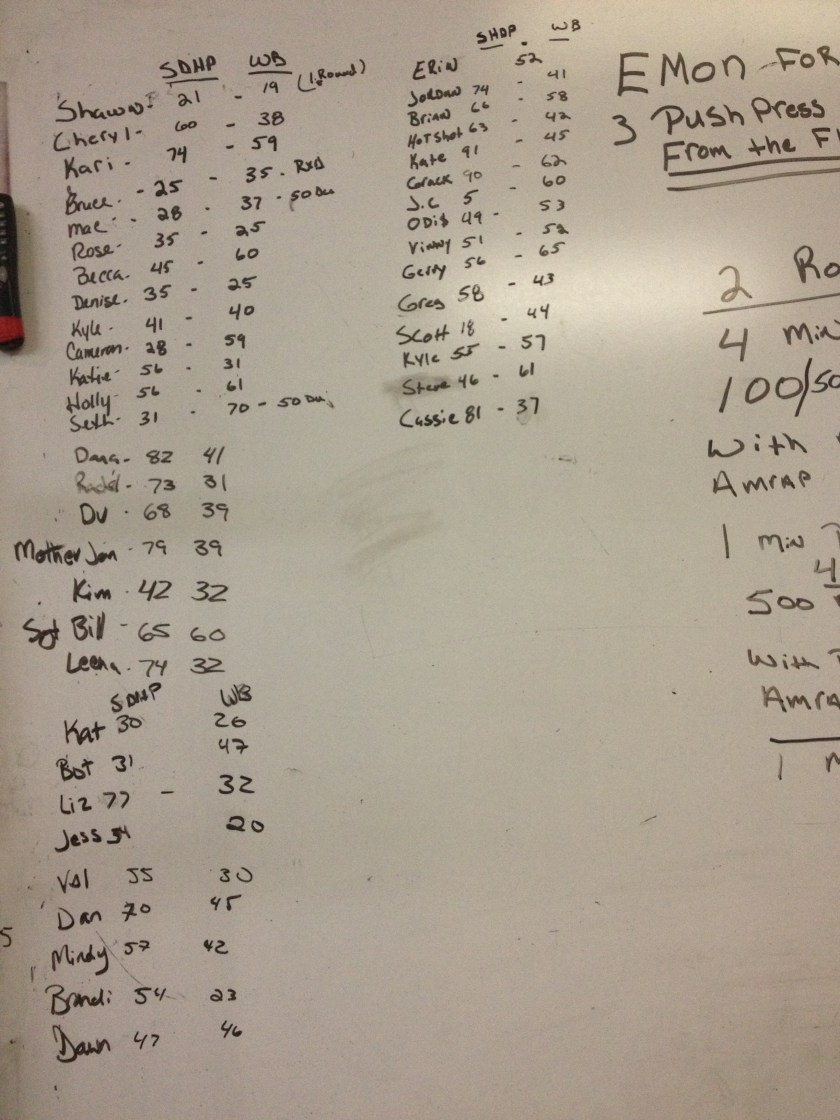 SDHP WB
Shawn- 21 - 19 (1 Round)
Cheryl- 60 - 38
Kari - 74 - 59
Bruce. - 25 - 35 - RXD
mac - 28 - 37 - 50 Du
Rose- 35 - 25
Becca. 45 - 60
Denise. 35 - 25
Kyle - 41 - 40
Cameron- 28 - 59
Katie- 56 - 31
Holly- 56 - 61
Seth- 31 - 70 - 50 Du
Dana- 82 41
73 31
DU - 68 39
Mother Jon - 79 39
Kim - 42 32
Sgt Bill - 65 60
Leena - 74 32
SDHP WB
Kat 30 26
Bot 31 47
Liz 77 - 32
Jess 54 20
Val 55 30
Dan 70 45
Mindy 57 42
Brandi 54 23
Dawn 47 46
SHDP WB
ERiN 52
JORDAN 74 - 41
Brian 66 - 58
HOTSHOT 63 - 42
Kate 91 - 45
Corack 90 - 62
J.C 5 - 60
ODIS 49 - 53
Vinny 51 - 52
Gerry 56 - 65
Greg 58 - 43
Scott 18 - 44
Kyle 55 - 57
Steve 46 - 61
Cassie 81 - 37
EMon FOR
3 Push Press
From the F
2 Ro
4 Min
100/50
With
Amrap
1 Min
4
500
With
Amra
1 M
5